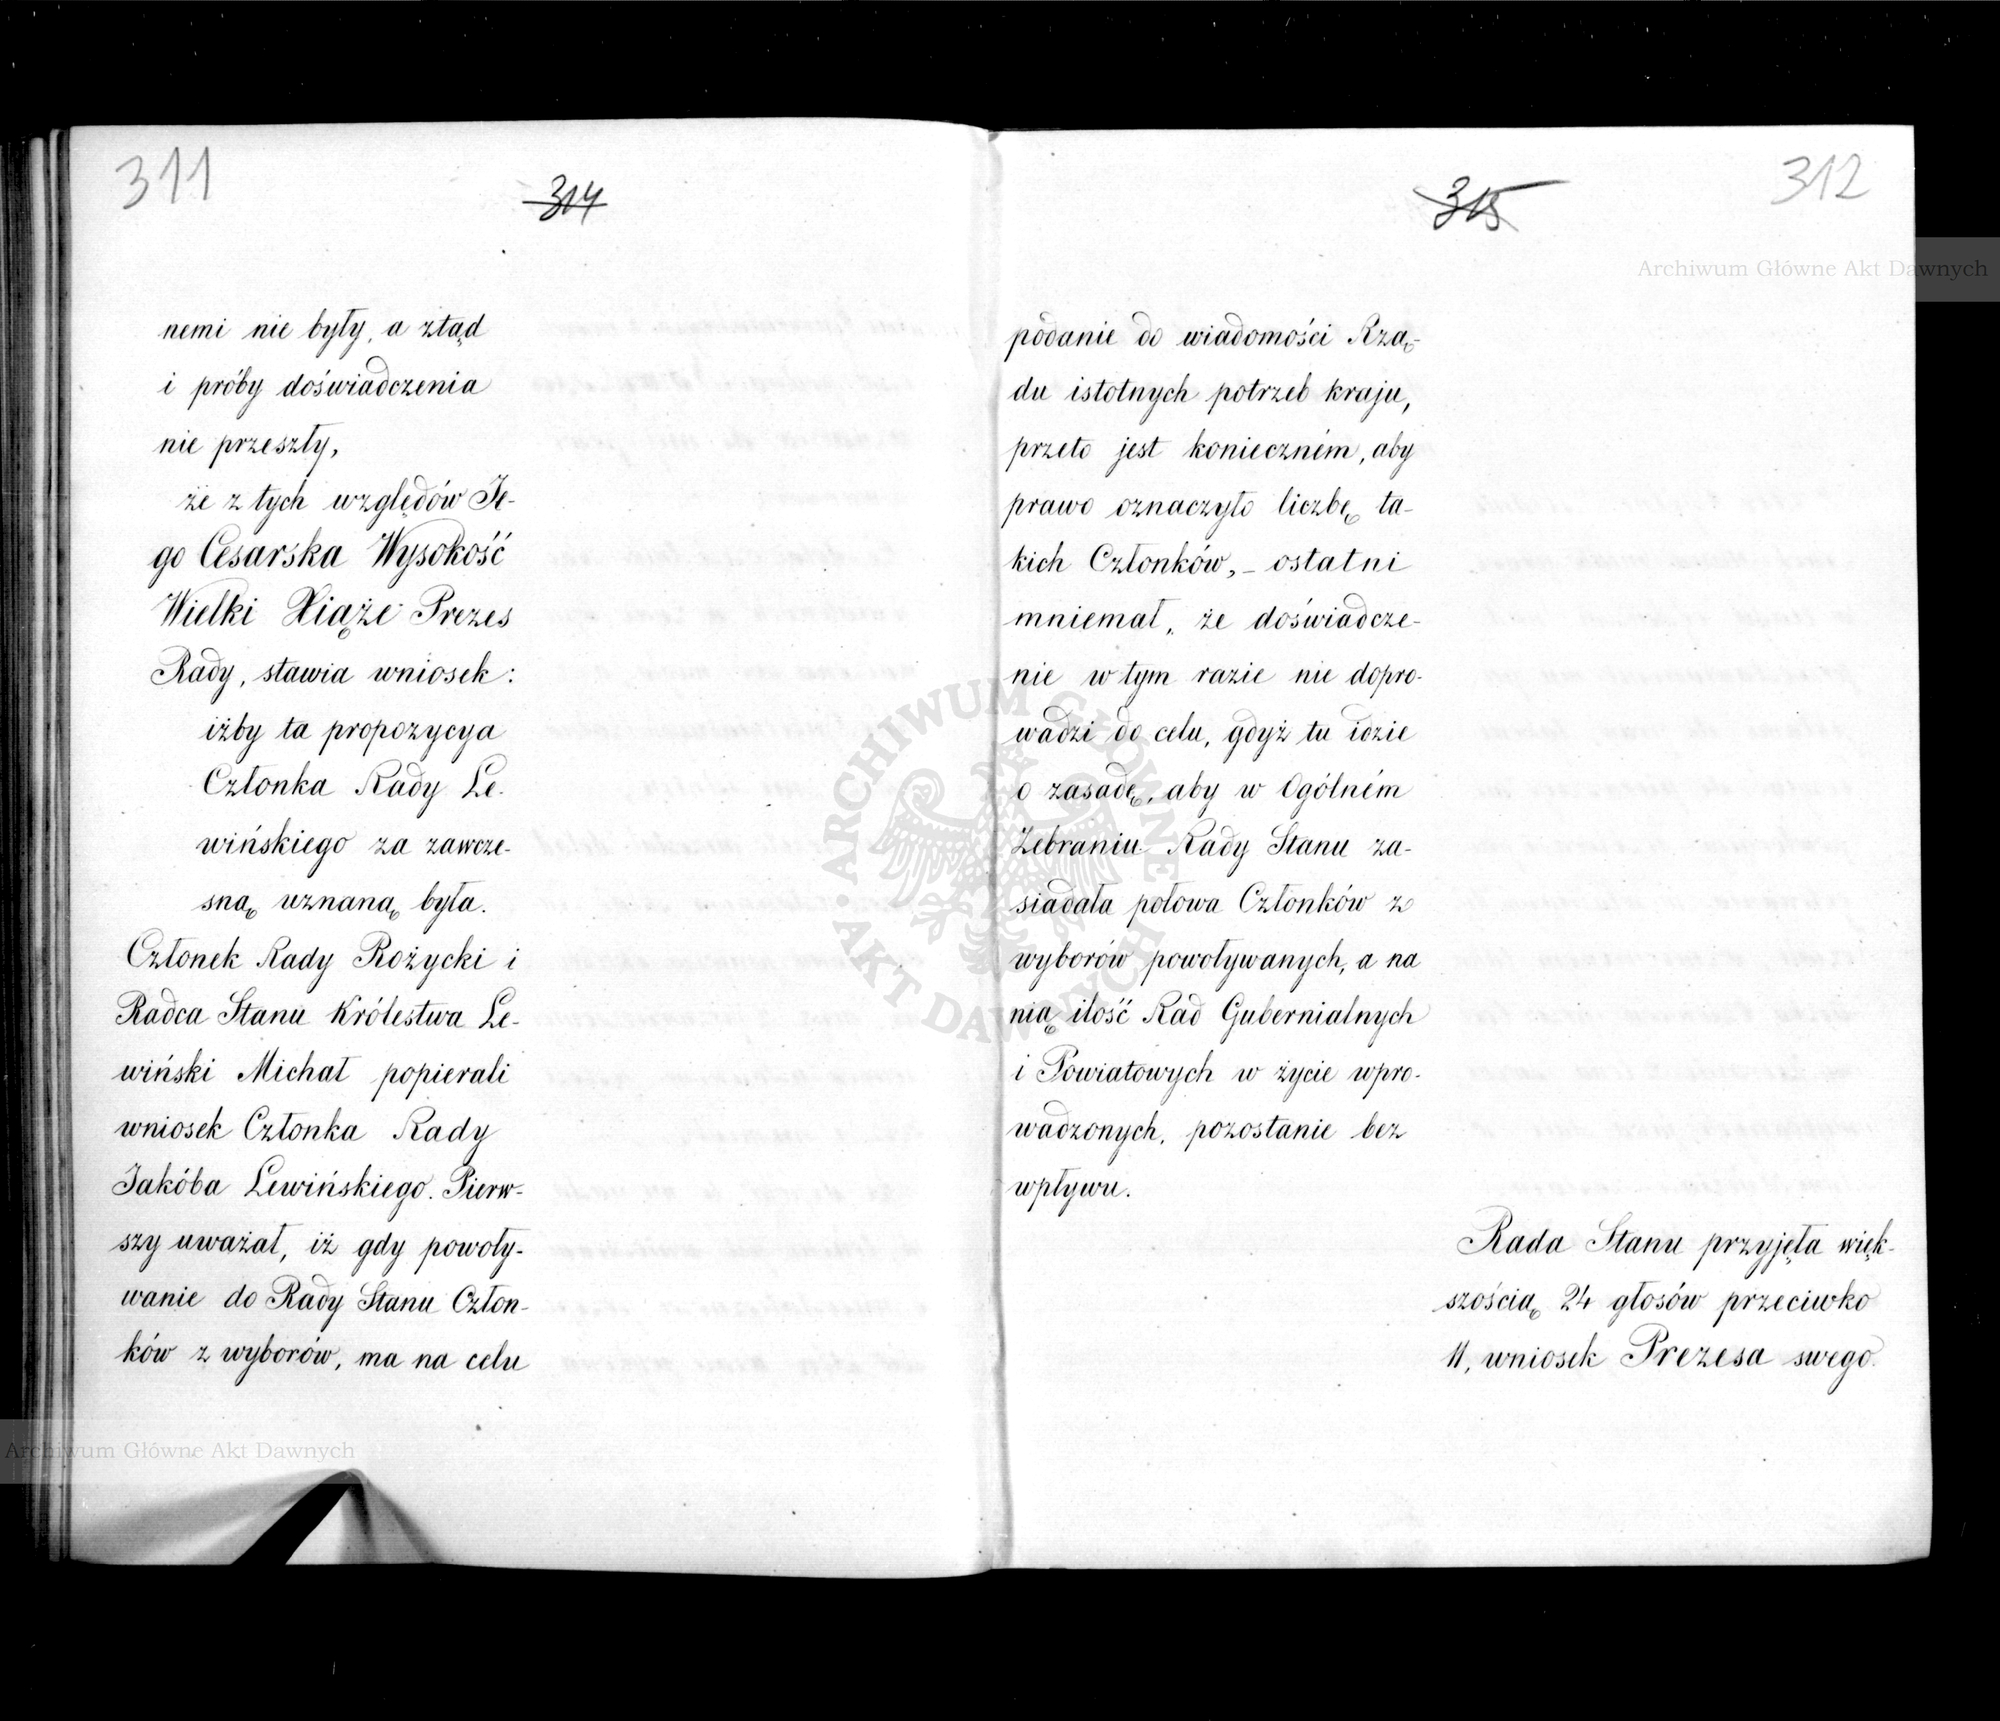 311
314
nemi nie były, a ztąd
i próby doświadczenia
nie przeszły,
że z tych względów Je-
go Cesarska Wysokość
Wielki Xiąże Prezes
Rady, stawia wniosek:
iżby ta propozycya
Członka Rady Le-
wińskiego za zawcze-
sną uznaną była.
Członek Rady Rożycki i
Radca Stanu Królestwa Le-
wiński Michał popierali
wniosek Członka Rady
Jakóba Lewińskiego. Pierw-
szy uważał, iż gdy powoły-
wanie do Rady Stanu Człon-
ków z wyborów, ma na celu
Archiwum Główne Akt Dawnych
315
312
Archiwum Główne Akt Dawnych
podanie do wiadomości Rzą-
du istotnych potrzeb kraju,
przeto jest konieczném, aby
prawo oznaczyło liczbę ta-
kich Członków, – ostatni
mniemał, że doświadcze-
nie w tym razie nie dopro-
wadzi do celu, gdyż tu idzie
o zasadę, aby w Ogólném
Zebraniu Rady Stanu za-
siadała połowa Członków z
wyborów powoływanych, a na
nią ilość Rad Gubernialnych
i Powiatowych w życie wpro-
wadzonych, pozostanie bez
wpływu.
Rada Stanu przyjęła więk-
szością 24 głosów przeciwko
11, wniosek Prezesa swego.
ARCHIWUM GŁÓWNE AKT DAWNYCH